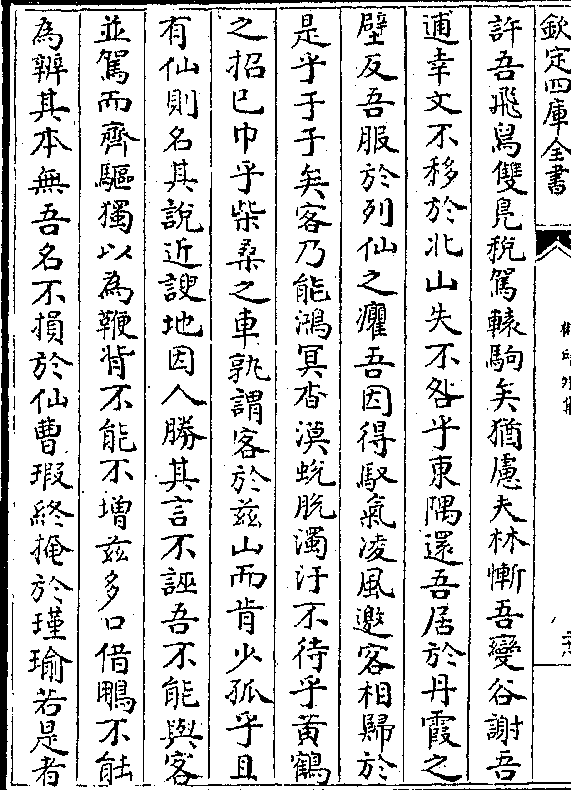 欽定四庫全書
許吾飛舄雙鳬稅駕轅駒矣猶慮夫林慚吾變谷謝吾
逋幸文不移於北山失不咎乎東隅還吾居於丹霞之
壁反吾服於列仙之癯吾因得馭氣凌風邀客相歸於
是乎于于矣客乃能鴻冥杳漠蛻脱濁汙不待乎黄鶴
之招已巾乎柴桑之車孰謂客於兹山而肯少孤乎且
有仙則名其說近諛地因人勝其言不誣吾不能與客
並駕而齊驅獨以為鞭背不能不增兹多口借鵰不能
為辨其本無吾名不損於仙曹瑕終掩於瑾瑜若是者